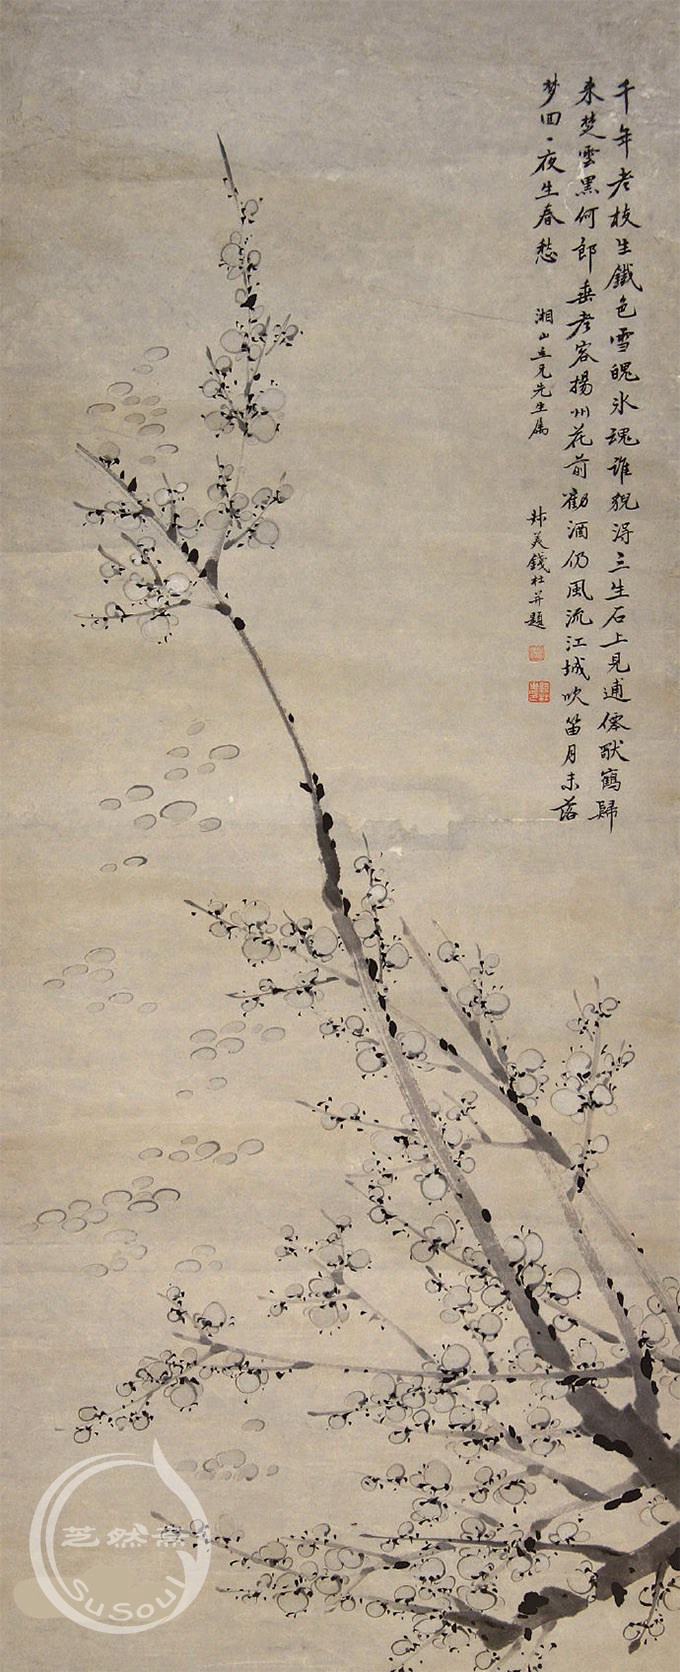 千年老枝生鐵色雪魄氷魂誰貌得三生石上見逋僊獸鶴歸
来楚雲黑何郎垂老客揚州花前勸酒仍風流江城吹笛月未落
梦回一夜生春愁
湘山五兄先生属
叔美錢杜并題
芝然素
SuSoul